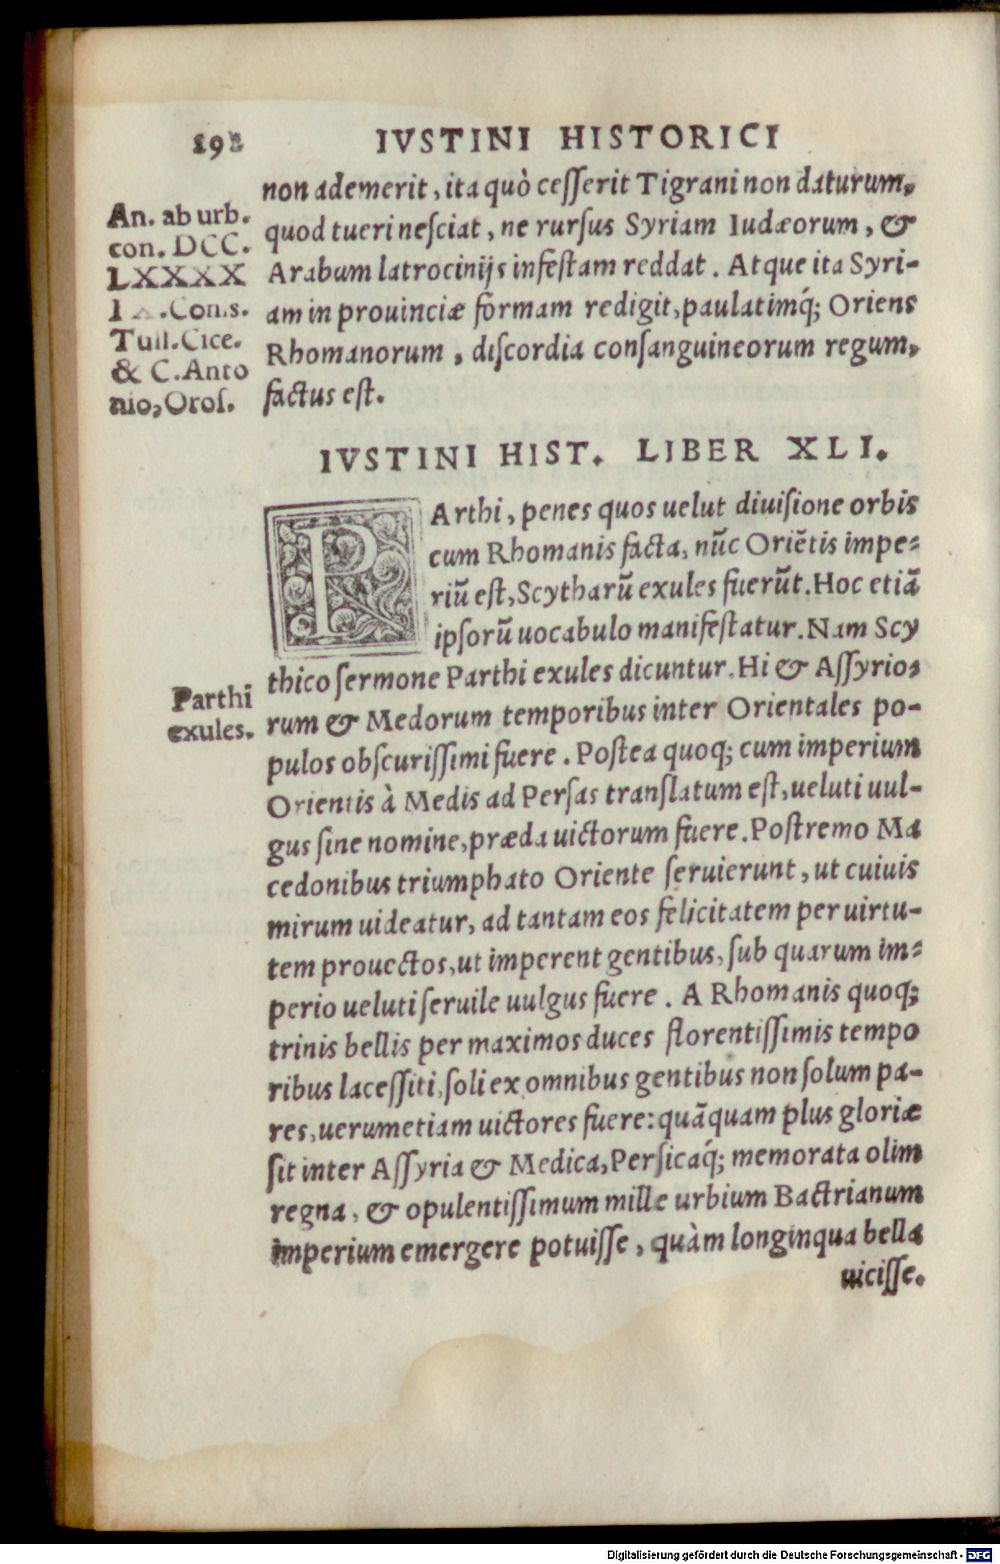 192 IVSTINI HISTORICI
non ademerit, ita quò cesserit Tigrani non daturum,
quod tueri nesciat, ne rursus Syriam Iudæorum, &
Arabum latrocinijs infestam reddat. Atque ita Syri-
am in prouinciæ formam redigit, paulatimq́; Oriens
Rhomanorum, discordia consanguineorum regum,
factus est.
An. ab urb.
con. DCC.
LXXXX
Cons.
Tull. Cice.
& C. Anto
nio, Oros.
IVSTINI HIST. LIBER XLI.
PArthi, penes quos uelut diuisione orbis
cum Rhomanis facta, nūc Oriētis impe-
riū est, Scytharū exules fuerūt. Hoc etiā
ipsorū uocabulo manifestatur. Nam Scy
thico sermone Parthi exules dicuntur. Hi & Assyrio-
rum & Medorum temporibus inter Orientales po-
pulos obscurissimi fuere. Postea quoq; cum imperium
Orientis à Medis ad Persas translatum est, ueluti uul-
gus sine nomine, præda uictorum fuere. Postremo Ma
cedonibus triumphato Oriente seruierunt, ut cuiuis
mirum uideatur, ad tantam eos felicitatem per uirtu-
tem prouectos, ut imperent gentibus, sub quarum im-
perio ueluti seruile uulgus fuere. A Rhomanis quoq;
trinis bellis per maximos duces florentissimis tempo
ribus lacessiti, soli ex omnibus gentibus non solum pa-
res, uerumetiam uictores fuere: quāquam plus gloriæ
sit inter Assyria & Medica, Persicaq́; memorata olim
regna, & opulentissimum mille urbium Bactrianum
imperium emergere potuisse, quàm longinqua bella
uicisse.
Parthi
exules.
Digitalisierung gefördert durch die Deutsche Forschungsgemeinschaft - DFG